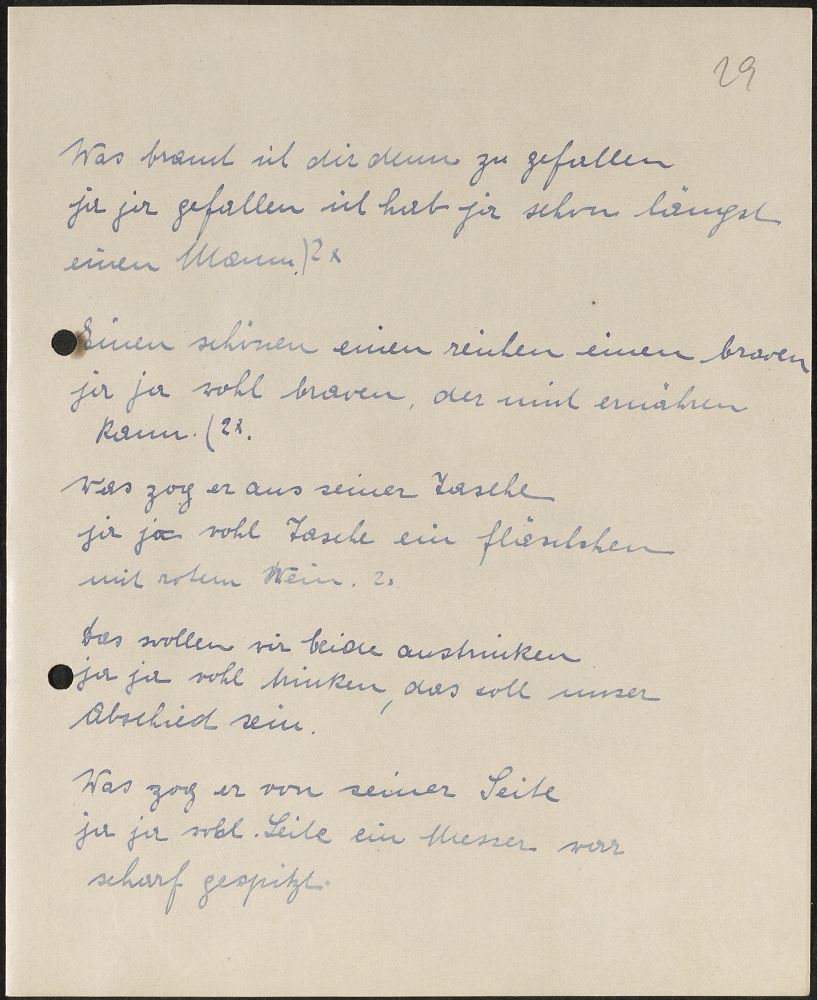 29
Was brauch ich dir denn zu gefallen
ja ja gefallen ich hab ja schon längst
einen Mann.)2x
Einen schönen einen reichen einen braven
ja ja wohl braven, der mich ernähren
kann. (2x.
was zog er aus seiner Tasche
ja ja vohl Tasche ein fläschchen
mit rotem Wein. 2.
Das wollen wir beide austrinken
ja ja vohl trinken, das soll unser
Abschied sein.
Was zog er von seiner Seite
ja ja wohl. Seite ein Messer war
scharf gespitzt.